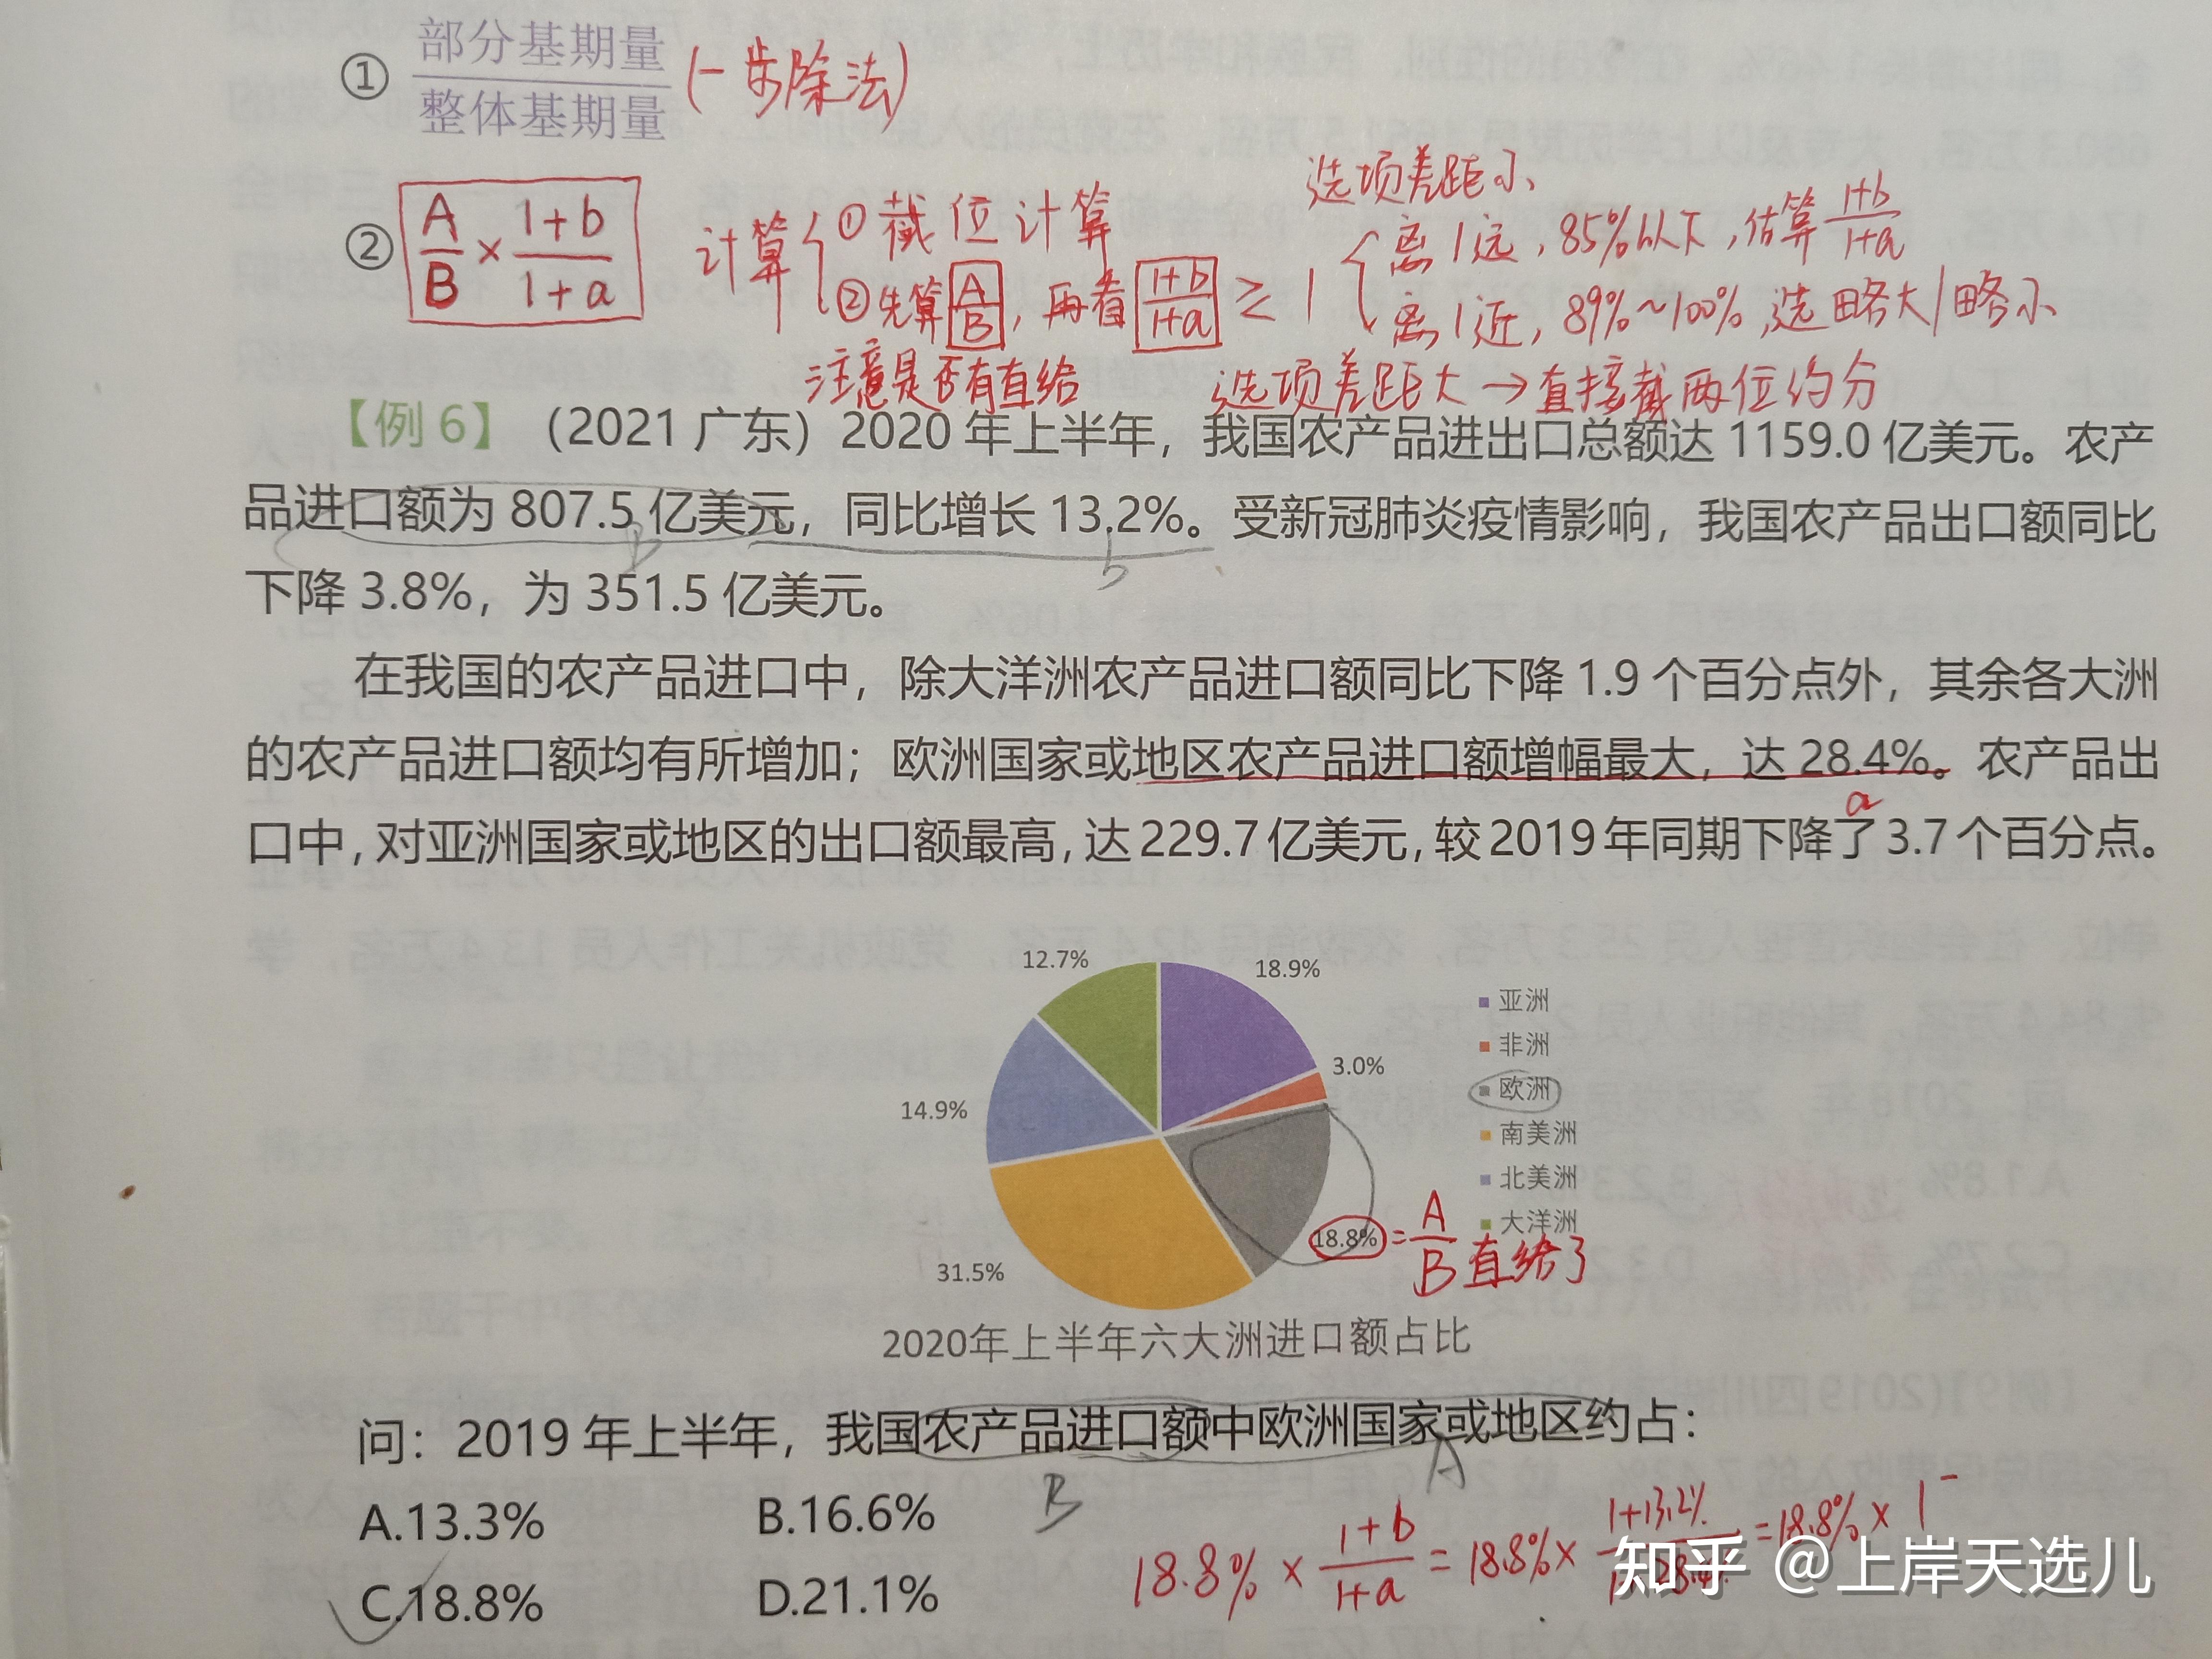 ① 部分基期量/整体基期量 (一步除法)
② A/B × 1+b/1+a
计算 ①截位计算
②先算 A/B，再看 1+b/1+a ≥ 1
选项差距小
离1远，85%以下，估算 1+b/1+a
离1近，89%~100%，选略大/略小
注意是否有直给
选项差距大→直接截两位约分
【例 6】（2021 广东）2020 年上半年，我国农产品进出口总额达 1159.0 亿美元。农产
品进口额为 807.5 亿美元，同比增长 13.2%。受新冠肺炎疫情影响，我国农产品出口额同比
B
b
下降 3.8%，为 351.5 亿美元。
在我国的农产品进口中，除大洋洲农产品进口额同比下降 1.9 个百分点外，其余各大洲
的农产品进口额均有所增加；欧洲国家或地区农产品进口额增幅最大，达 28.4%。农产品出
a
口中，对亚洲国家或地区的出口额最高，达 229.7 亿美元，较 2019 年同期下降了 3.7 个百分点。
12.7%
18.9%
3.0%
14.9%
31.5%
18.8% = A/B 直给了
亚洲
非洲
欧洲
南美洲
北美洲
大洋洲
2020年上半年六大洲进口额占比
问：2019 年上半年，我国农产品进口额中欧洲国家或地区约占：
B
A
A.13.3%
B.16.6%
C.18.8%
D.21.1%
18.8% × 1+b/1+a = 18.8% × 1+13.2%/1+28.4% = 18.8% × 1⁻
知乎 @上岸天选儿